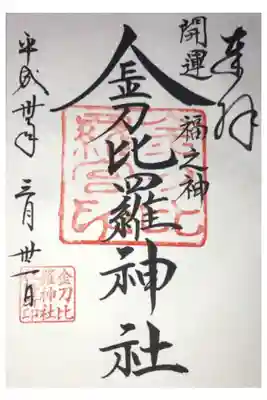 奉拝
開運 福之神
金刀比羅神社
平成卅年 三月 卅一日
金刀比
羅神社